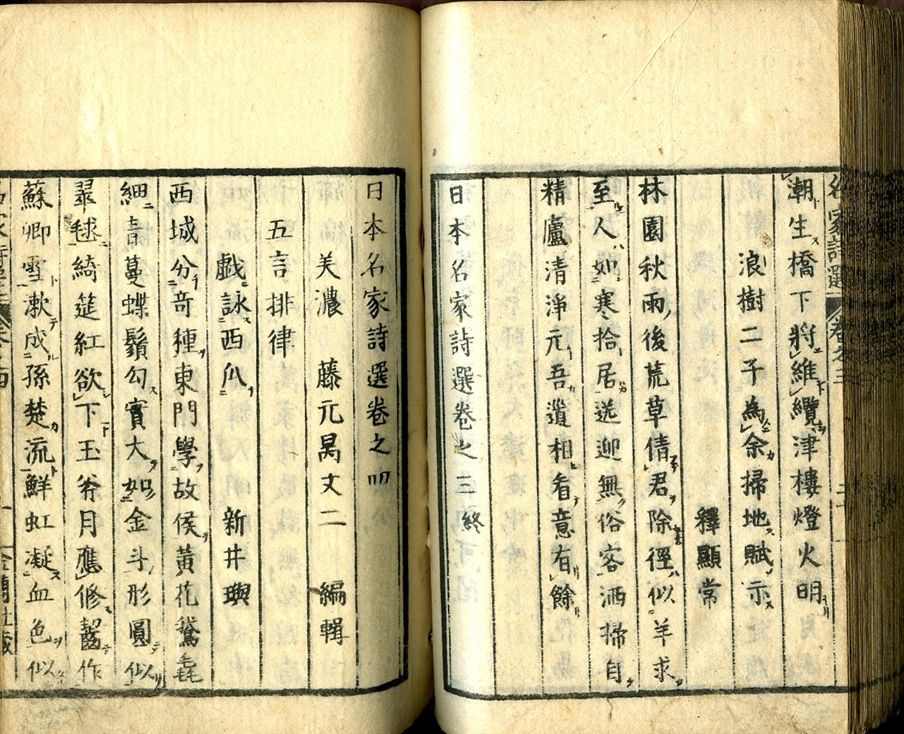 名家詩選 卷之三
潮生橋下將維纜津樓燈火明
浪樹二子為余掃地賦示
釋顯常
林園秋雨後荒草倩君除徑似羊求
至人如寒拾居送迎無俗客洒掃自
精廬清淨元吾道相看意有餘
日本名家詩選卷之三終
日本名家詩選卷之四
美濃 藤元昺文二 編輯
五言排律
戲詠西瓜 新井璵
西城分奇種東門學故侯黃花鵞毳
細青蔓蝶鬚勾實大如金斗形圓似
翠毬綺筵紅欲下玉斧月應修齧作
蘇卿雪漱成孫楚流鮮虹凝血色似